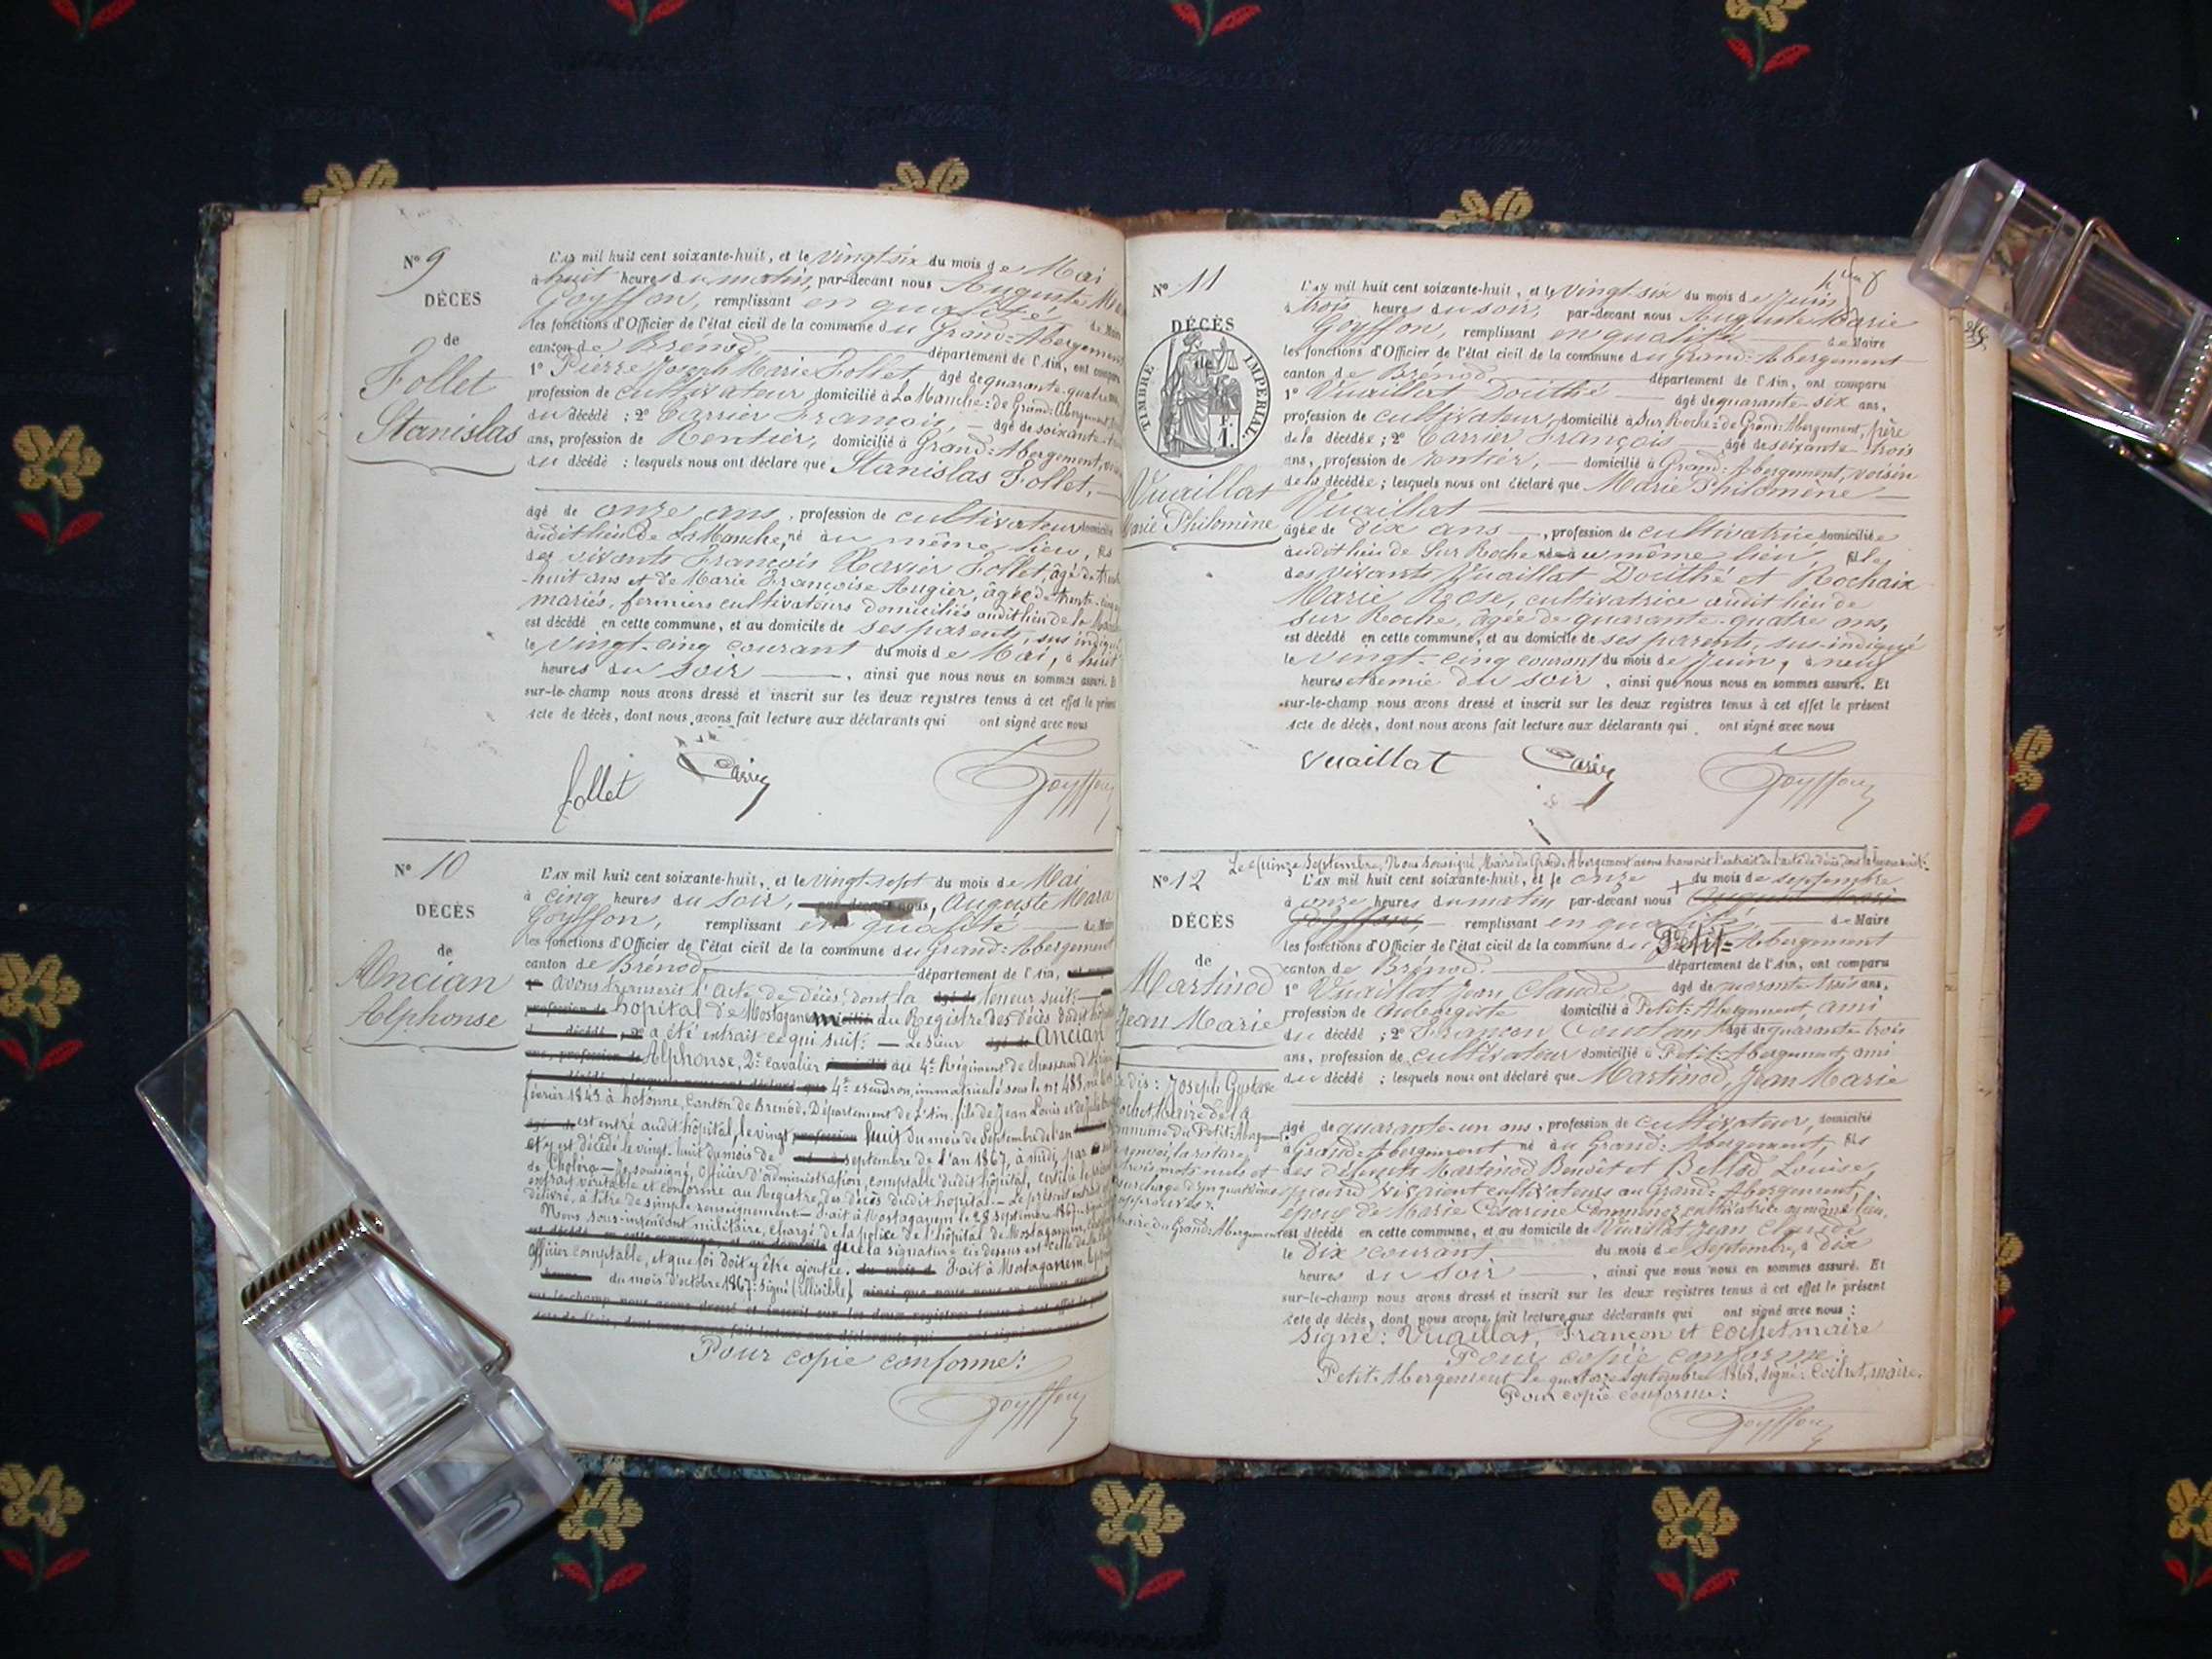 N° 9
DÉCÈS
de
Follet
Stanislas
L'AN mil huit cent soixante-huit, et le vingt six du mois de Mai
à huit heures du matin, par-devant nous Auguste
Goyffon, remplissant en qualité de Maire
les fonctions d'Officier de l'état civil de la commune du Grand=Abergement
canton de Brénod département de l'Ain, ont comparu
1° Pierre Joseph Marie Follet âgé de quarante-quatre
profession de cultivateur domicilié à La Manche=de Grand=Abergement,
du décédé ; 2° Carrier François, âgé de soixante
ans, profession de Rentier, domicilié à Grand=Abergement,
du décédé : lesquels nous ont déclaré que Stanislas Follet,
âgé de onze ans, profession de cultivateur domicilié
audit lieu de La Manche, né au même lieu, fils
des vivants François Xavier Follet, âgé de
-huit ans et de Marie Françoise Augier, âgée de trente-cinq
mariés, fermiers cultivateurs domiciliés audit lieu de la Manche
est décédé en cette commune, et au domicile de ses parents, sus indiqué
le vingt-cinq courant du mois de Mai, à huit
heures du soir, ainsi que nous nous en sommes assuré. Et
sur-le-champ nous avons dressé et inscrit sur les deux registres tenus à cet effet le présent
acte de décès, dont nous avons fait lecture aux déclarants qui ont signé avec nous
follet Carrier Goyffon
N° 10
DÉCÈS
de
Ancian
Alphonse
L'AN mil huit cent soixante-huit, et le vingt-sept du mois de Mai
à cinq heures du soir, par-devant nous, Auguste Marie
Goyffon, remplissant en qualité de Maire
les fonctions d'Officier de l'état civil de la commune du Grand=Abergement
canton de Brénod, département de l'Ain,
avons transcrit l'acte de décès, dont la teneur suit:
hôpital de Mostaganem du Registre des décès dudit hôpital
a été extrait ce qui suit: — Le sieur Ancian
Alphonse, 2e cavalier au 4e Régiment de chasseurs d'Afrique
4e escadron, immatriculé sous le n° 488, né le
février 1843 à hotonne, Canton de Brénod, Département de l'Ain, fils de Jean Louis et de
est entré audit hôpital, le vingt huit du mois de Septembre de l'an
et y est décédé le vingt-huit du mois de septembre de l'an 1867, à midi, par
de Choléra — Je soussigné, Officier d'administration, comptable dudit hôpital, certifie le présent
extrait véritable et conforme au Registre des décès dudit hôpital. — Le présent extrait
délivré, à titre de simple renseignement — Fait à Mostaganem le 28 Septembre 1867
Nous sous-intendant militaire, chargé de la police de l'hôpital de Mostaganem,
que la signature ci-dessus est celle de
Officier comptable, et que foi doit y être ajoutée. Fait à Mostaganem, le
du mois d'octobre 1867: signé (Illisible)
Pour copie conforme:
Goyffon
N° 11
DÉCÈS
de
TIMBRE IMPERIAL
1 F.
Vuaillat
Marie Philomène
L'AN mil huit cent soixante-huit, et le vingt six du mois de Juin
à trois heures du soir, par-devant nous Auguste Marie
Goyffon, remplissant en qualité de Maire
les fonctions d'Officier de l'état civil de la commune du Grand=Abergement
canton de Brénod département de l'Ain, ont comparu
1° Vuaillat Dosithé âgé de quarante-six ans,
profession de cultivateur, domicilié à Sur Roche=de Grand=Abergement, père
de la décédée ; 2° Carrier François âgé de soixante-trois
ans, profession de rentier, domicilié à Grand=Abergement, voisin
de la décédée ; lesquels nous ont déclaré que Marie Philomène
Vuaillat
âgée de dix ans, profession de cultivatrice domiciliée
audit lieu de Sur Roche née au même lieu, fille
des vivants Vuaillat Dosithé et Rochaix
Marie Rose, cultivatrice audit lieu de
sur Roche, âgée de quarante-quatre ans,
est décédé en cette commune, et au domicile de ses parents, sus-indiqué
le vingt-cinq courant du mois de Juin, à neuf
heures et demie du soir, ainsi que nous nous en sommes assuré. Et
sur-le-champ nous avons dressé et inscrit sur les deux registres tenus à cet effet le présent
acte de décès, dont nous avons fait lecture aux déclarants qui ont signé avec nous
Vuaillat Carrier Goyffon
Le quinze Septembre, Nous Soussigné, Maire du Grand=Abergement avons transcrit l'extrait de l'acte de décès, dont la teneur suit:
N° 12
DÉCÈS
de
Martinod
Jean Marie
L'AN mil huit cent soixante-huit, et le onze du mois de septembre
à onze heures du matin par-devant nous Auguste Marie
Goyffon, remplissant en qualité de Maire
les fonctions d'Officier de l'état civil de la commune du Petit=Abergement
canton de Brénod. département de l'Ain, ont comparu
1° Vuaillat Jean Claude âgé de quarante trois ans,
profession de aubergiste domicilié à Petit-Abergement, ami
du décédé ; 2° Françon Constant âgé de quarante trois
ans, profession de cultivateur domicilié à Petit-Abergement, ami
du décédé ; lesquels nous ont déclaré que Martinod, Jean Marie
âgé de quarante-un ans, profession de cultivateur, domicilié
à Grand=Abergement né au Grand=Abergement, fils
des défunts Martinod Benoît et Bellod Louise,
quand vivaient cultivateurs au Grand=Abergement,
époux de Marie Césarine cultivatrice au même lieu,
est décédé en cette commune, et au domicile de Vuaillat Jean Claude
le Dix courant du mois de Septembre, à dix
heures du soir, ainsi que nous nous en sommes assuré. Et
sur-le-champ nous avons dressé et inscrit sur les deux registres tenus à cet effet le présent
acte de décès, dont nous avons fait lecture aux déclarants qui ont signé avec nous :
signé: Vuaillat, Françon et Cochet maire
Pour copie conforme:
Petit-Abergement le quatorze Septembre 1868, signé: Cochet, maire.
Pour copie conforme:
Goyffon
Je dis: Joseph Gustave
Cochet, Maire de la
commune du Petit-Abergement.
renvoi, la rature
trois mots nuls et
surcharge d'un quatrième
approuvés.
maire du Grand-Abergement